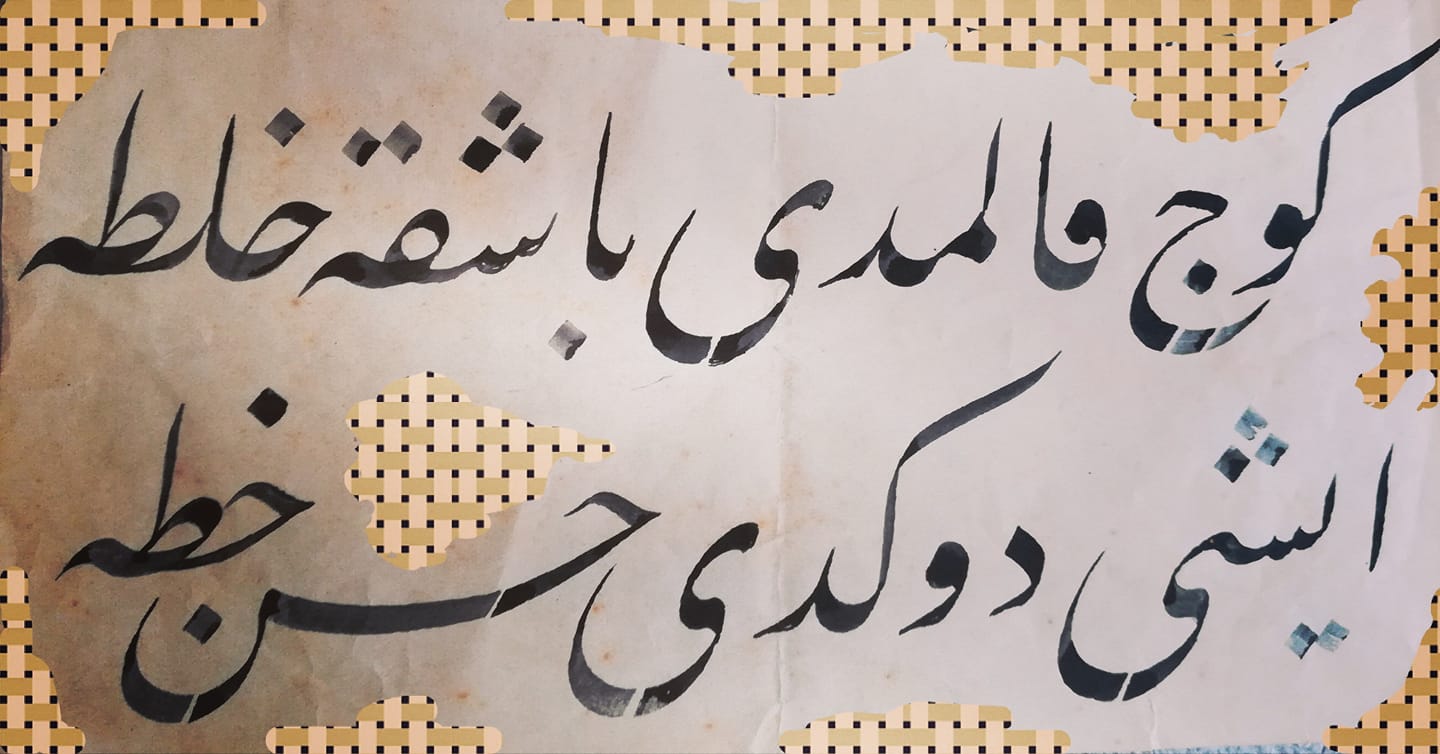 كوج قالمدى باشقه خلطه
ايشى دوكدى حسن خطه